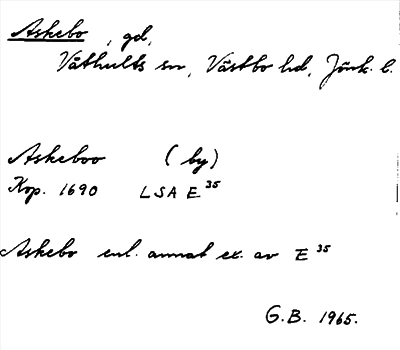 Askebo, gd,
Våthults sn, Västbo hd, Jönk. l.
Askeboo (by)
Kop. 1690 LSA E 35
Askebo enl. annat ex. av E 35
G.B. 1965.